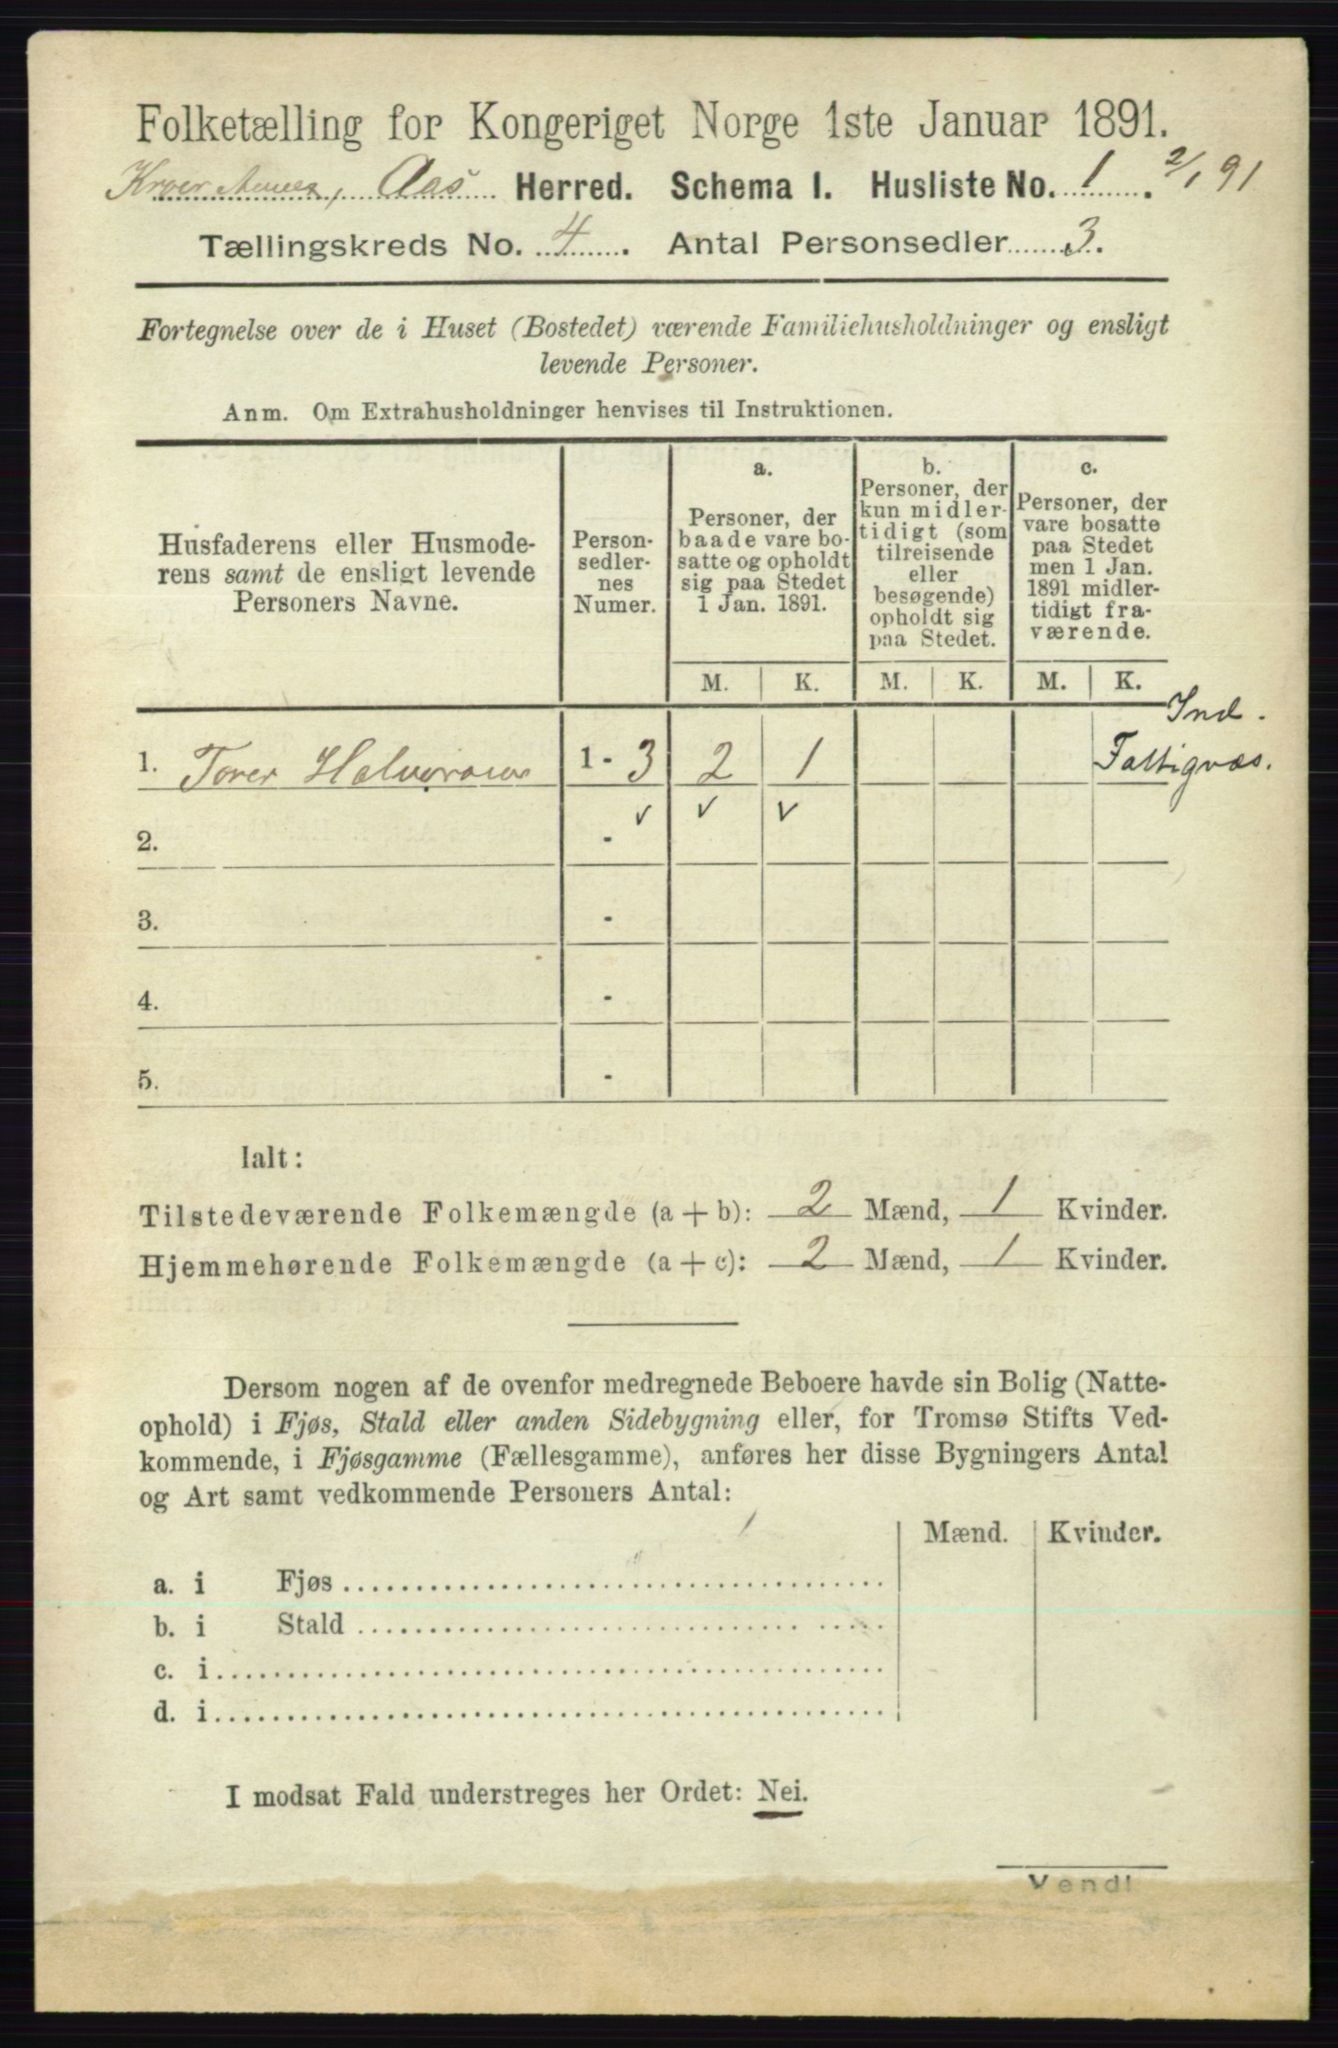 Folketælling for Kongeriget Norge 1ste Januar 1891.
Kroer Annex, Aas Herred. Schema I. Husliste No. 1. 2/1 91
Tællingskreds No. 4. Antal Personsedler 3.
Fortegnelse over de i Huset (Bostedet) værende Familiehusholdninger og ensligt
levende Personer.
Anm. Om Extrahusholdninger henvises til Instruktionen.
Husfaderens eller Husmode-
rens samt de ensligt levende
Personers Navne.
Person-
sedler-
nes
Numer.
a.
Personer, der
baade vare bo-
satte og opholdt
sig paa Stedet
1 Jan. 1891.
b.
Personer, der
kun midler-
tidigt (som
tilreisende
eller
besøgende)
opholdt sig
paa Stedet.
c.
Personer, der
vare bosatte
paa Stedet
men 1 Jan.
1891 midler-
tidigt fra-
værende.
M. K. M. K. M. K.
Ind.
1. Torer 1 - 3 2 1 Fattigvæs.
2. - ✓ ✓ ✓
3. -
4. -
5. -
Ialt:
Tilstedeværende Folkemængde (a + b): 2 Mænd, 1 Kvinder.
Hjemmehørende Folkemængde (a + c): 2 Mænd, 1 Kvinder.
Dersom nogen af de ovenfor medregnede Beboere havde sin Bolig (Natte-
ophold) i Fjøs, Stald eller anden Sidebygning eller, for Tromsø Stifts Ved-
kommende, i Fjøsgamme (Fællesgamme), anføres her disse Bygningers Antal
og Art samt vedkommende Personers Antal:
Mænd. Kvinder.
a. i Fjøs
b. i Stald
c. i
d. i
I modsat Fald understreges her Ordet: Nei.
Vend!